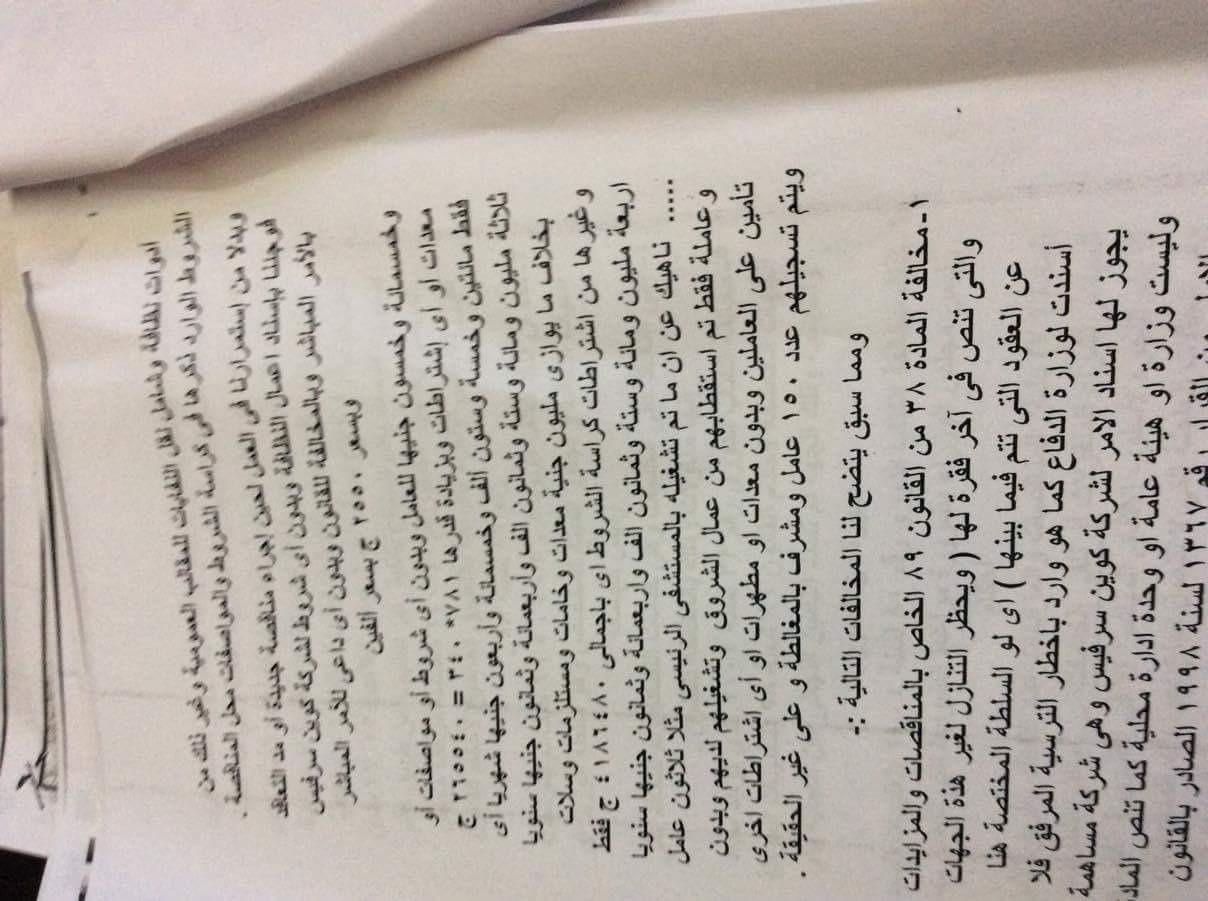 ادوات نظافة وشامل نقل النفايات للمقالب العمومية وغير ذلك من
الشروط الوارد ذكرها فى كراسة الشروط والمواصفات محل المناقصة .
وبدلا من إستمرارنا فى العمل لحين اجراء مناقصة جديدة او مد التعاقد
فوجئنا بإسناد اعمال النظافة وبدون أى شروط لشركة كوين سرفيس
بالأمر المباشر وبالمخالفة للقانون وبدون أى داعى للأمر المباشر
وبسعر ٢٥٥٠ ج بسعر الفين
وخمسمائة وخمسون جنيها للعامل وبدون أى شروط أو مواصفات أو
معدات او أى إشتراطات وبزيادة قدرها ٧٨١* ٣٤٠ = ٢٦٥٥٤٠ ج
فقط مائتين وخمسة وستون ألف وخمسمائة وأربعون جنيها شهريا أى
ثلاثة مليون ومائة وستة وثمانون الف وأربعمائة وثمانون جنيها سنويا
بخلاف ما يوازى مليون جنية معدات وخامات ومستلزمات وسلات
وغيرها من اشتراطات كراسة الشروط اى باجمالى ٤١٨٦٤٨٠ ج فقط
اربعة مليون ومائة وستة وثمانون الف واربعمائة وثمانون جنيها سنويا
..... ناهيك عن ان ما تم تشغيله بالمستشفى الرئيسى مثلا ثلاثون عامل
وعاملة فقط تم استقطابهم من عمال الشروق وتشغيلهم لديهم وبدون
تأمين على العاملين وبدون معدات او مطهرات او أى اشتراطات اخرى
ويتم تسجيلهم عدد ١٥٠ عامل ومشرف بالمغالطة و على غير الحقيقة .
ومما سبق يتضح لنا المخالفات التالية :-
١-مخالفة المادة ٣٨ من القانون ٨٩ الخاص بالمناقصات والمزايدات
والتى تنص فى آخر فقرة لها ( ويحظر التنازل لغير هذة الجهات
عن العقود التى تتم فيما بينها ) اى لو السلطة المختصة هنا
أسندت لوزارة الدفاع كما هو وارد باخطار الترسية المرفق فلا
يجوز لها اسناد الامر لشركة كوين سرفيس وهى شركة مساهمة
وليست وزارة او هيئة عامة او وحدة ادارة محلية كما تنص المادة
من القرار رقم ١٣٦٧ لسنة ١٩٩٨ الصادر بالقانون